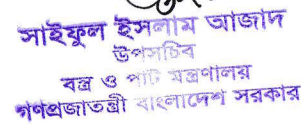 সাইফুল ইসলাম আজাদ
উপসচিব
বস্ত্র ও পাট মন্ত্রণালয়
গণপ্রজাতন্ত্রী বাংলাদেশ সরকার